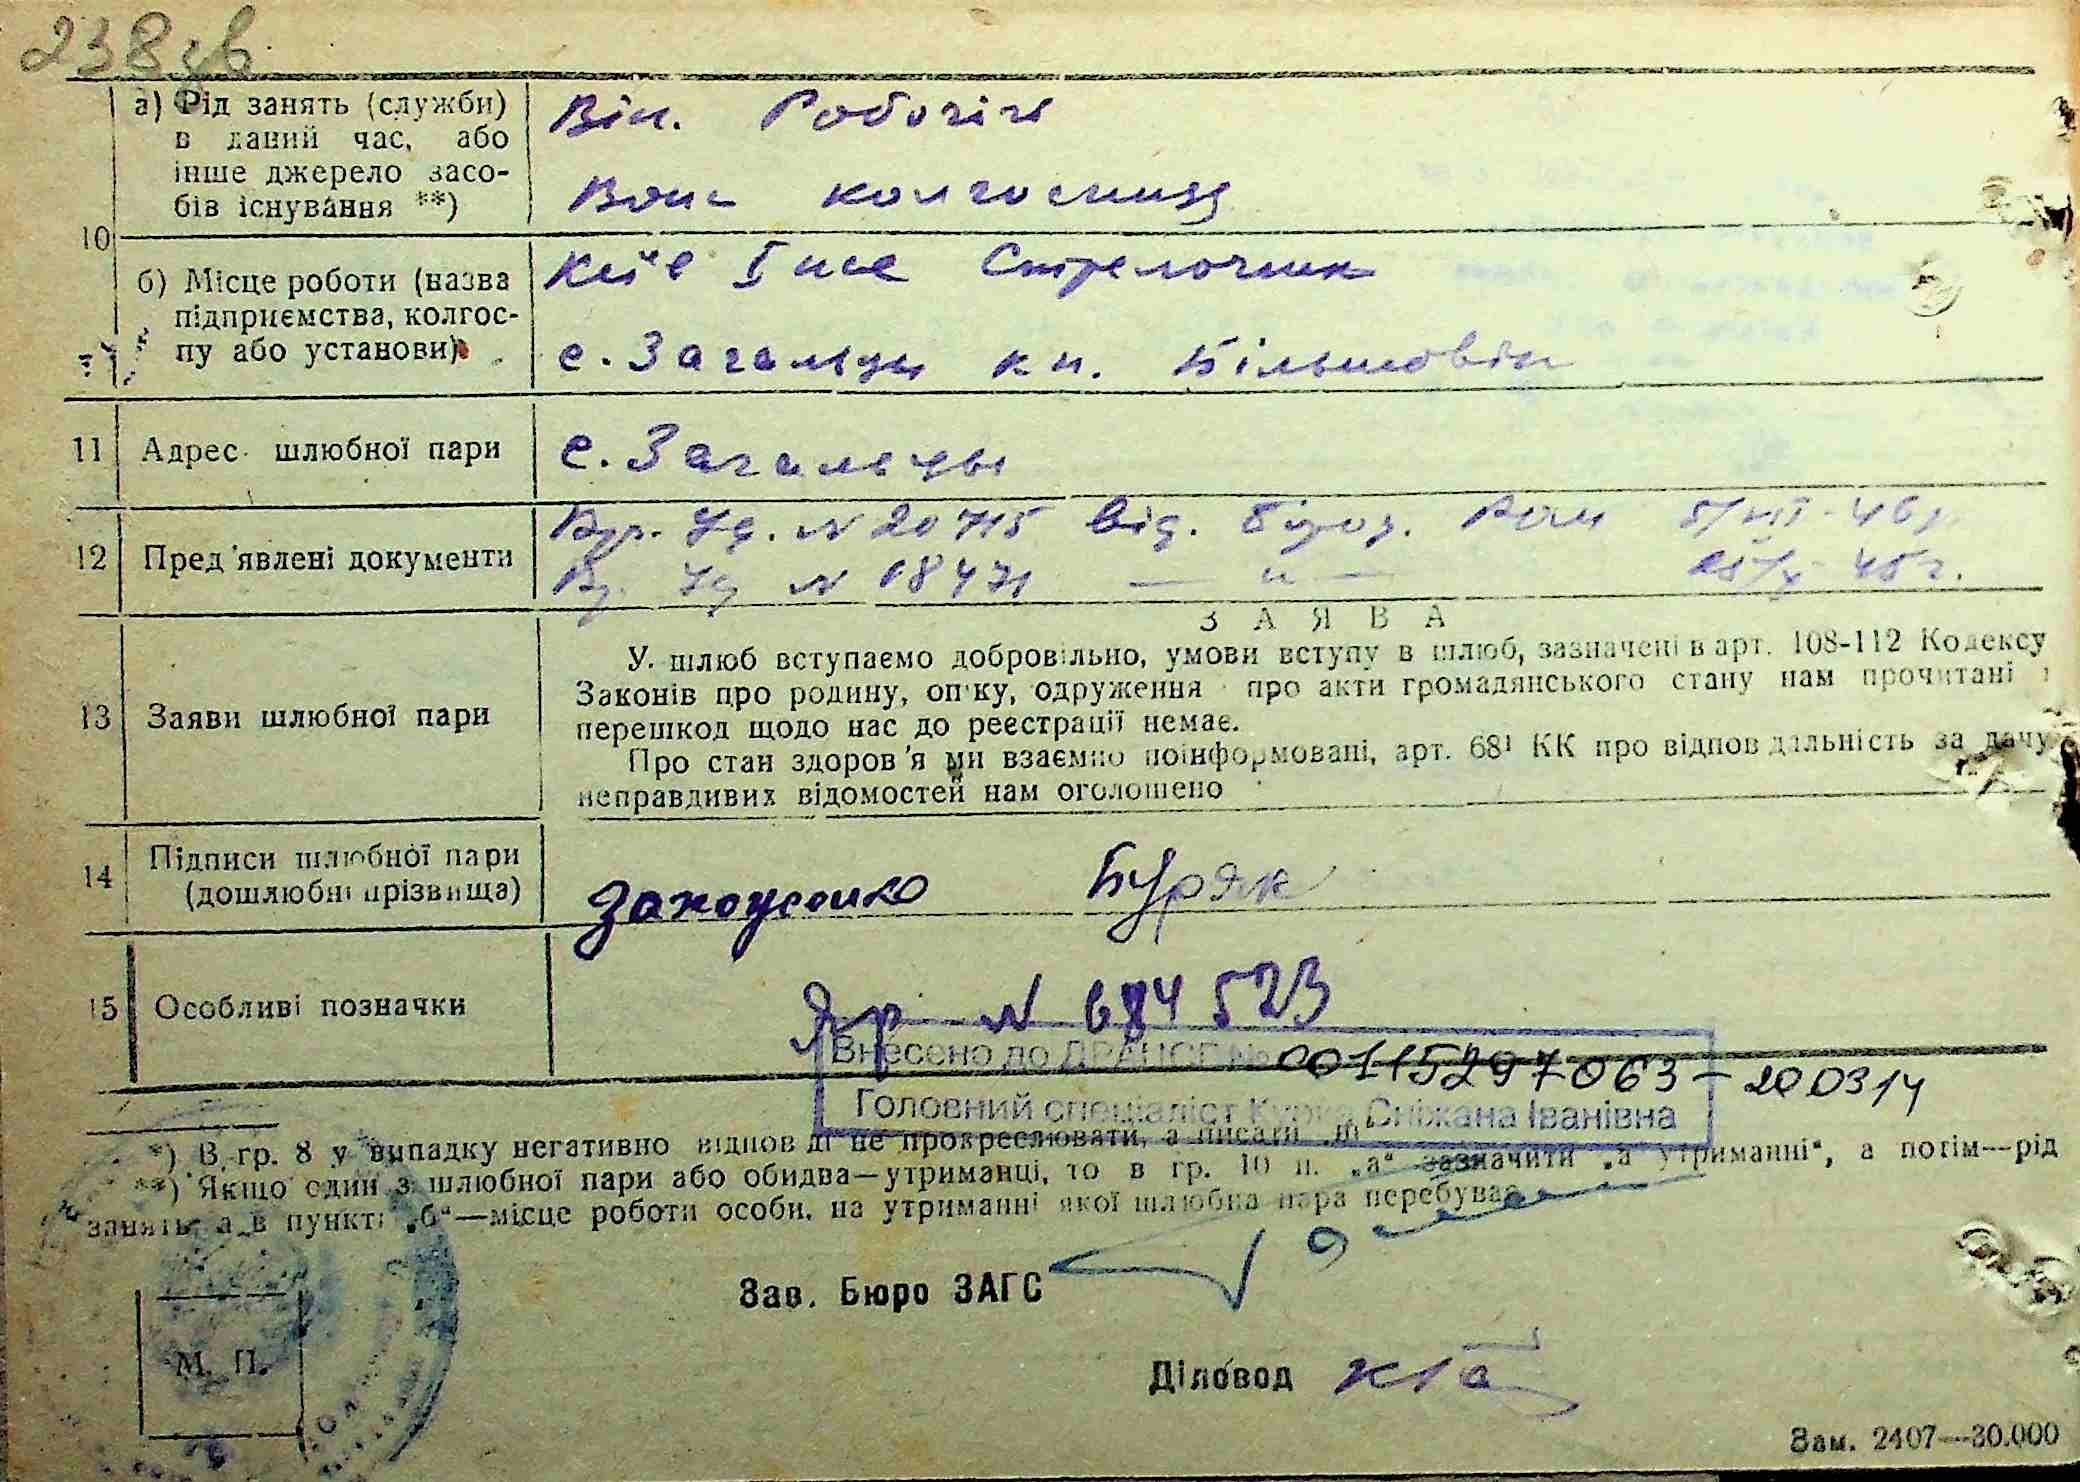 238зв
а) Рід занять (служби)
в даний час, або
інше джерело засо-
бів існування **)
Він. Робочій
Вона колгоспниця
10
б) Місце роботи (назва
підприємства, колгос-
пу або установи)
Київ I Стрелочник
с. Загальцы кн. Більшовик
11 Адрес шлюбної пари
с. Загальцы
12 Пред'явлені документи
Вр. Уд. N 20715 від. Бород. Ром 5/VII-46р.
Вр. Уд N 18471 — " — 25/X-45г.
13 Заяви шлюбної пари
ЗАЯВА
У шлюб вступаємо добровільно, умови вступу в шлюб, зазначені в арт. 108-112 Кодексу
Законів про родину, опіку, одруження про акти громадянського стану нам прочитані і
перешкод щодо нас до реєстрації немає.
Про стан здоров'я ми взаємно поінформовані, арт. 68¹ КК про відповідальність за дачу
неправдивих відомостей нам оголошено
14 Підписи шлюбної пари
(дошлюбні прізвища)
Буряк
15 Особливі позначки
N 684523
Внесено до ДРАЦСГ № 00115297063 – 200314
Головний спеціаліст Курка Сніжана Іванівна
*) В гр. 8 у випадку негативно відповіді не прокреслювати, а писати
**) Якщо один з шлюбної пари або обидва—утриманці, то в гр. 10 п. „а" зазначити „а утриманні", а потім—рід
занять, а в пункті „б"—місце роботи особи, на утриманні якої шлюбна пара перебуває
Зав. Бюро ЗАГС
М. П.
Діловод
Зам. 2407—30.000